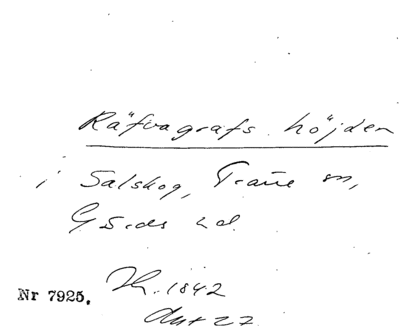 Räfvagrafs höjden
i Salskog, Trane sn,
G Sds hd.
Nr 7925. Th. 1842
Aut 27